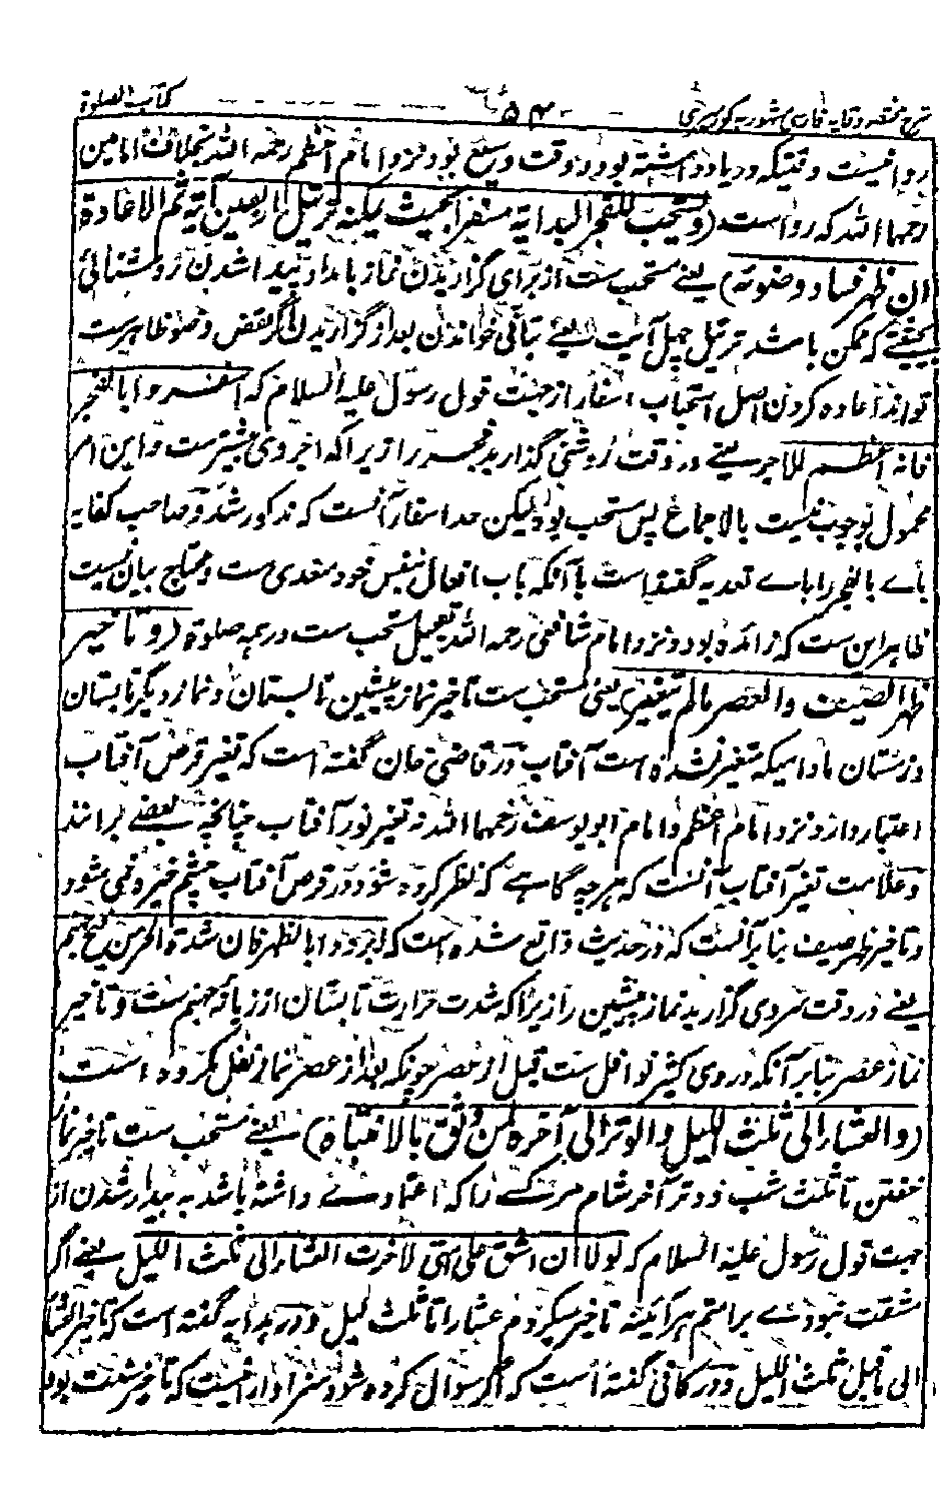 شرح مختصر وقایه فارسی مشهور به کور سیری ۵۴ کتاب الصلوة
روا نیست وقتیکه در یاد داشته بود و وقت وسیع بود نزد امام اعظم رحمه الله بخلاف امامین
رحمهما الله که روا ست (ویستحب للفجر البدایة مسفرا بحیث یمکنه ترتیل اربعین آیة ثم الاعادة
ان ظهر فساد وضوئه) یعنے مستحب ست از برای گزاریدن نماز بامداد پیدا شدن روشنائی
بحیثیتے که ممکن باشد ترتیل چهل آیت یعنے بتأنی خواندن بعد از گزاریدن اگر نقض وضو ظاهر ست
تواند اعاده کردن اصل استحباب اسفار از جهت قول رسول علیه السلام که اسفروا بالفجر
فانه اعظم للاجر یعنے در وقت روشنی گذارید فجر را زیرا که اجر وی بیشتر ست و این امر
محمول بوجوب نیست بالاجماع پس مستحب بود لیکن حد اسفار آنست که مذکور شد و صاحب کفایه
باے بالفجر را باے تعدیه گفته است با آنکه باب افعال بنفس خود متعدی ست و محتاج بیان نیست
ظاهر این ست که زائده بود و نزد امام شافعی رحمه الله تعجیل مستحب ست در همه صلوة (و تاخیر
ظهر الصیف والعصر مالم یتغیر) یعنی مستحب ست تاخیر نماز پیشین تابستان و نماز دیگر تابستان
و زمستان مادامیکه متغیر نشده است آفتاب و در قاضی خان گفته است که تغیر قرص آفتاب
اعتبار دارد نزد امام اعظم و امام ابو یوسف رحمهما الله نه تغیر نور آفتاب چنانچه بعضے برانند
و علامت تغیر آفتاب آنست که هر چه گاهے که نظر کرده شود در قرص آفتاب چشم خیره نمی شود
و تاخیر ظهر صیف بنا بر آنست که در حدیث واقع شده است که ابردوا بالظهر فان شدة الحر من فیح جهنم
یعنے در وقت سردی گزارید نماز پیشین را زیرا که شدت حرارت تابستان از زبانه جهنم ست و تاخیر
نماز عصر بنا بر آنکه در وی کثیر نوافل ست قبل از عصر چونکه بعد از عصر نماز نفل مکروه است
(والعشاء الی ثلث اللیل والوتر الی آخره لمن وثق بالانتباه) یعنے مستحب ست تاخیر نماز
خفتن تا ثلث شب و وتر آخر شام مر کسے را که اعتمادے داشته باشد به بیدار شدن از
جهت قول رسول علیه السلام که لولا ان اشق علی امتی لاخرت العشاء الی ثلث اللیل یعنے اگر
مشقت نبودے بر امتم هر آئینه تاخیر میکردم عشا را تا ثلث لیل و در هدایه گفته است که تاخیر العشاء
الی ماقبل ثلث اللیل و در کافی گفته است که اگر سوال کرده شود سزاوار نیست که تاخیر سنت بود